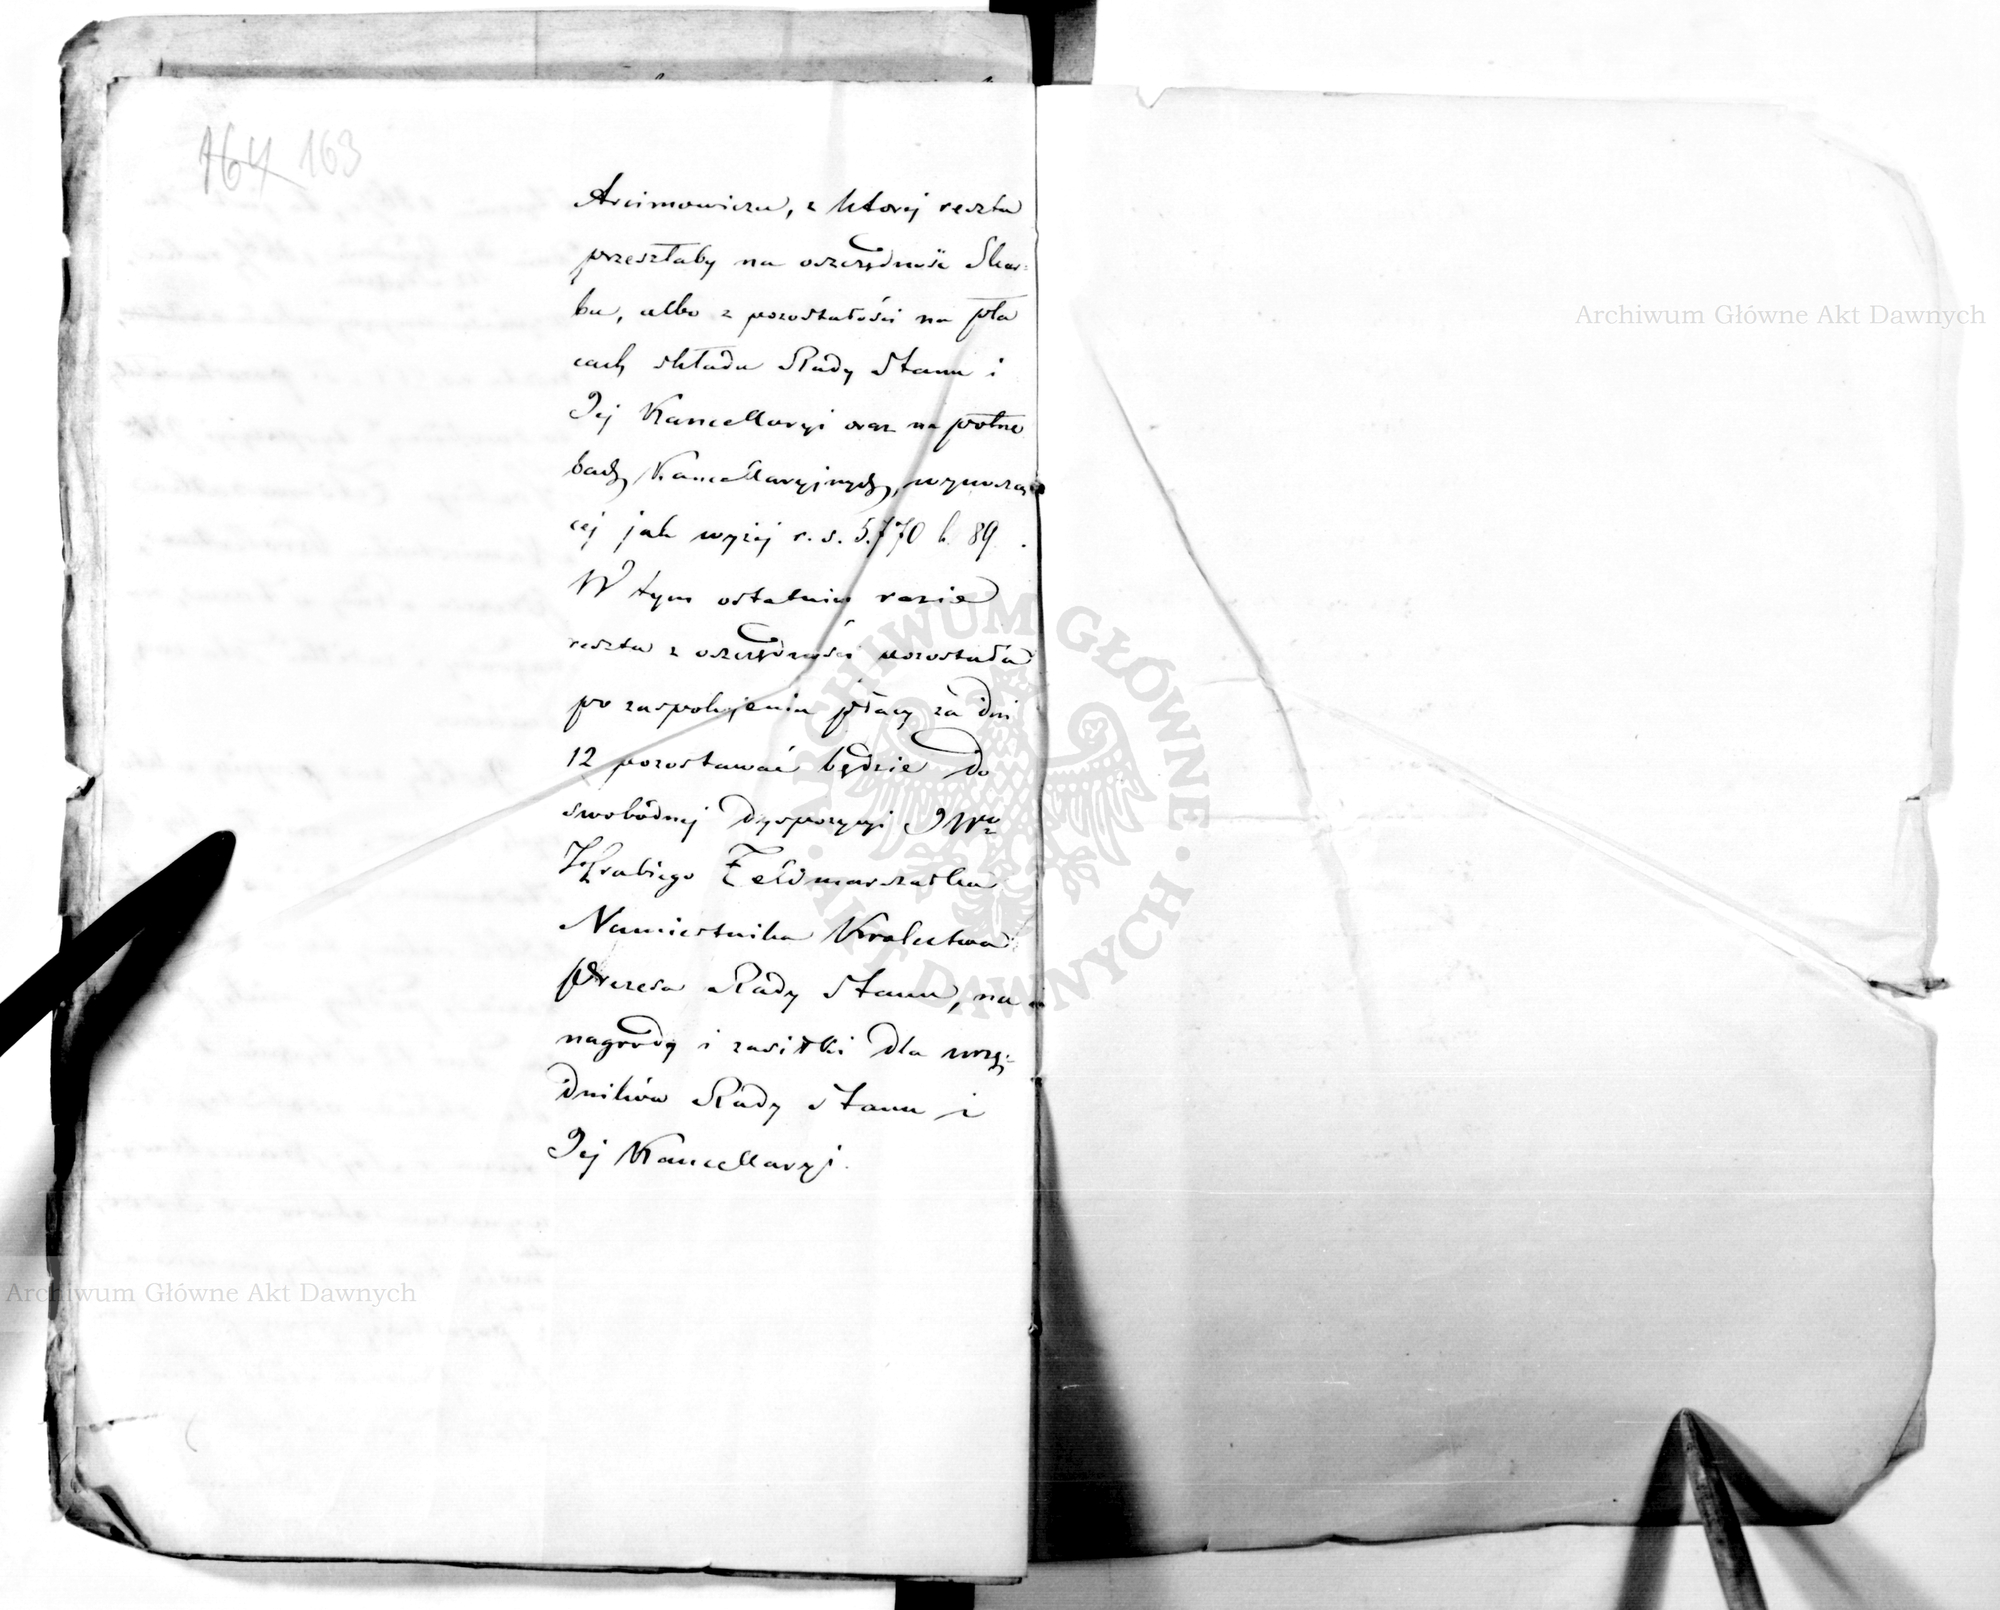 164 163
Arcimowicza, z ktorej reszta
przeszłaby na oszczędność Skar:
bu, albo z pozostałości na pła
cach składu Rady Stanu i
Jej Kancellaryi oraz na potrze
bach Kancellaryjnych, wynoszą
cej jak wyżej r. s. 5.770 k. 89.
W tym ostatnim razie
reszta z oszczędności pozostała
po zaspokojeniu płacy za dni
12 pozostawać będzie do
swobodnej dyspozycyi JWo
Hrabiego Feldmarszałka
Namiestnika Krolestwa
Prezesa Rady Stanu, na
nagrody i zasiłki dla urzę:
dników Rady Stanu i
Jej Kancellaryi.
Archiwum Główne Akt Dawnych
ARCHIWUM GŁÓWNE AKT DAWNYCH
Archiwum Główne Akt Dawnych